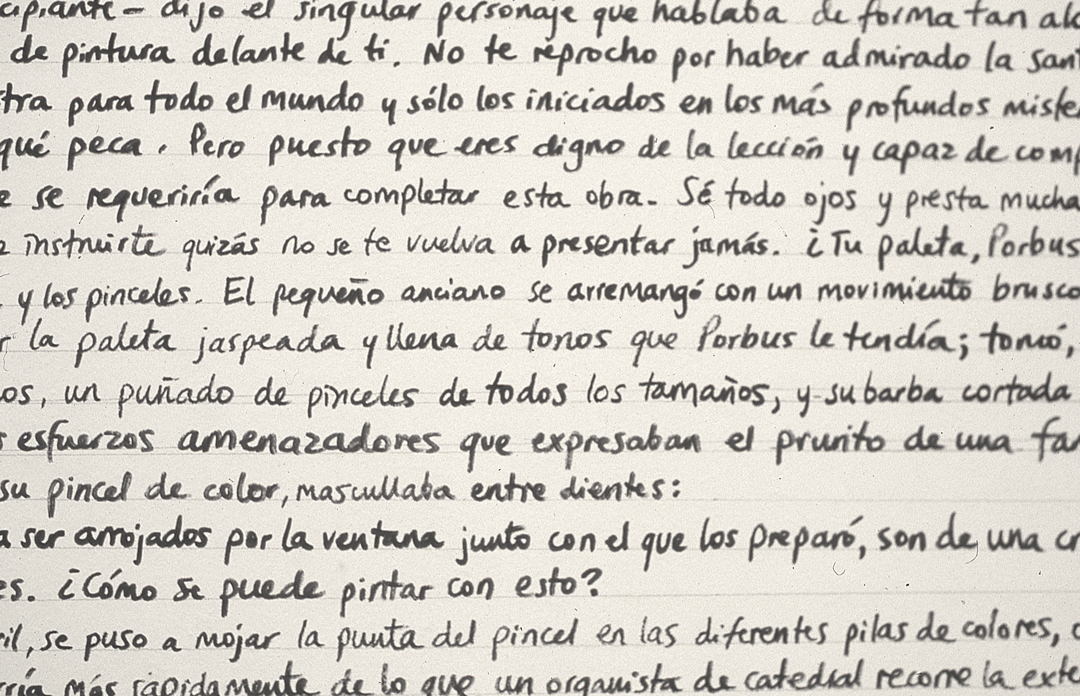 cipiante – dijo el singular personaje que hablaba de forma tan alo
de pintura delante de ti. No te reprocho por haber admirado la san
tra para todo el mundo y sólo los iniciados en los más profundos miste
qué peca. Pero puesto que eres digno de la lección y capaz de comp
e se requeriría para completar esta obra. Sé todo ojos y presta mucha
e instruirte quizás no se te vuelva a presentar jamás. ¿Tu paleta, Porbus
. y los pinceles. El pequeño anciano se arremangó con un movimiento brusco
r la paleta jaspeada y llena de tonos que Porbus le tendía; tomó,
os, un puñado de pinceles de todos los tamaños, y su barba cortada
s esfuerzos amenazadores que expresaban el prurito de una fan
su pincel de color, mascullaba entre dientes:
a ser arrojados por la ventana junto con el que los preparó, son de una cr
es. ¿Cómo se puede pintar con esto?
il, se puso a mojar la punta del pincel en las diferentes pilas de colores, c
rría más rápidamente de lo que un organista de catedral recorre la exte